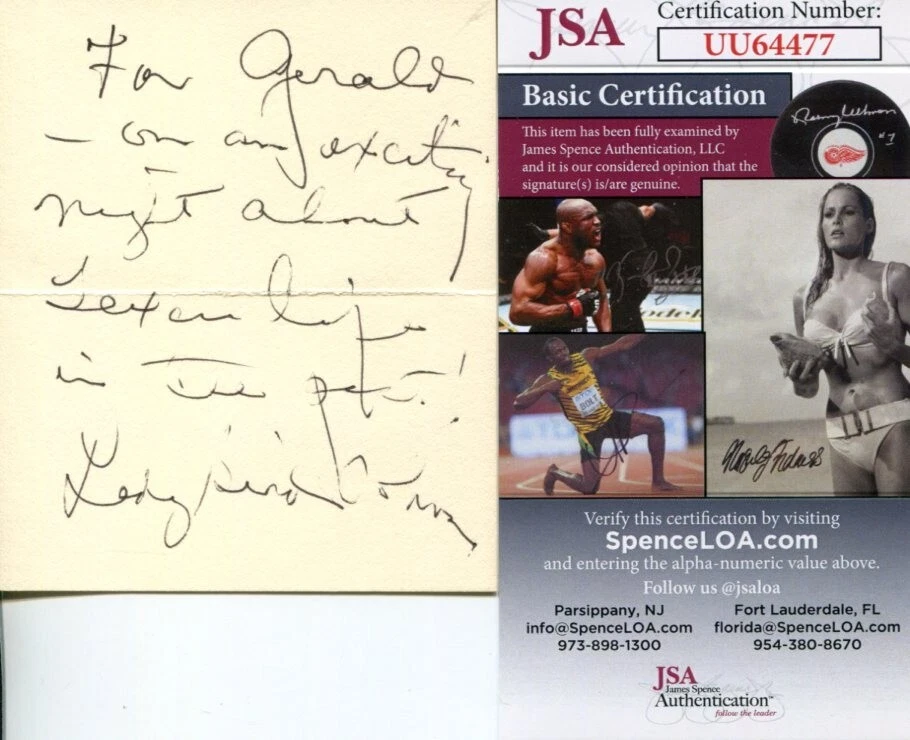 For Gerald
– on an exciting
night about
Texan life
in the past!
Lady Bird Johnson
JSA
Certification Number:
UU64477
Basic Certification
This item has been fully examined by
James Spence Authentication, LLC
and it is our considered opinion that the
signature(s) is/are genuine.
#7
BOLT
Verify this certification by visiting
SpenceLOA.com
and entering the alpha-numeric value above.
Follow us @jsaloa
Parsippany, NJ
info@SpenceLOA.com
973-898-1300
Fort Lauderdale, FL
florida@SpenceLOA.com
954-380-8670
JSA
James Spence
Authentication™
follow the leader